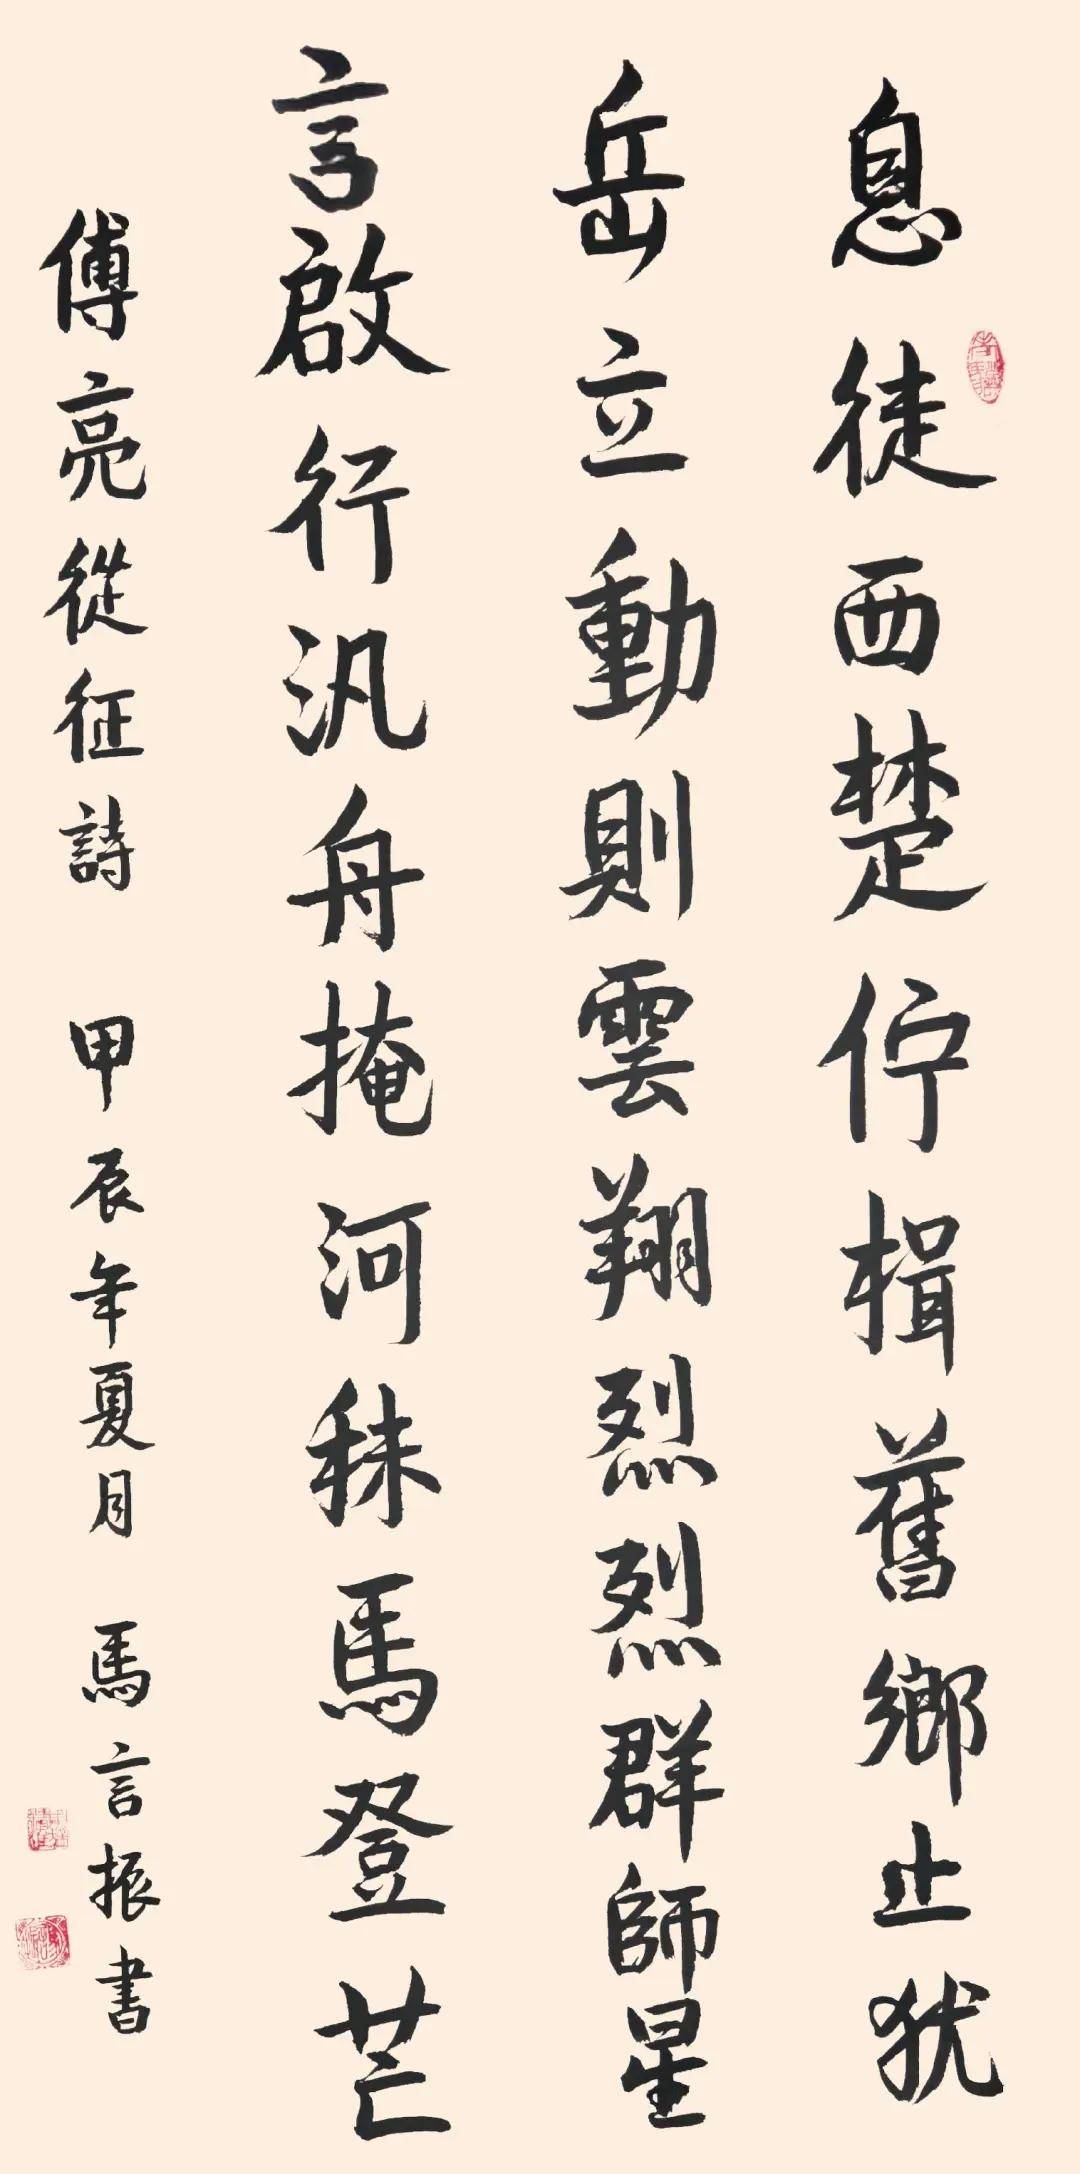 息徒西楚佇楫舊鄉止犹
岳立動則雲翔烈烈群師星
言啟行汎舟掩河秣馬登芒
傅亮從征詩 甲辰年夏月 馬言振書